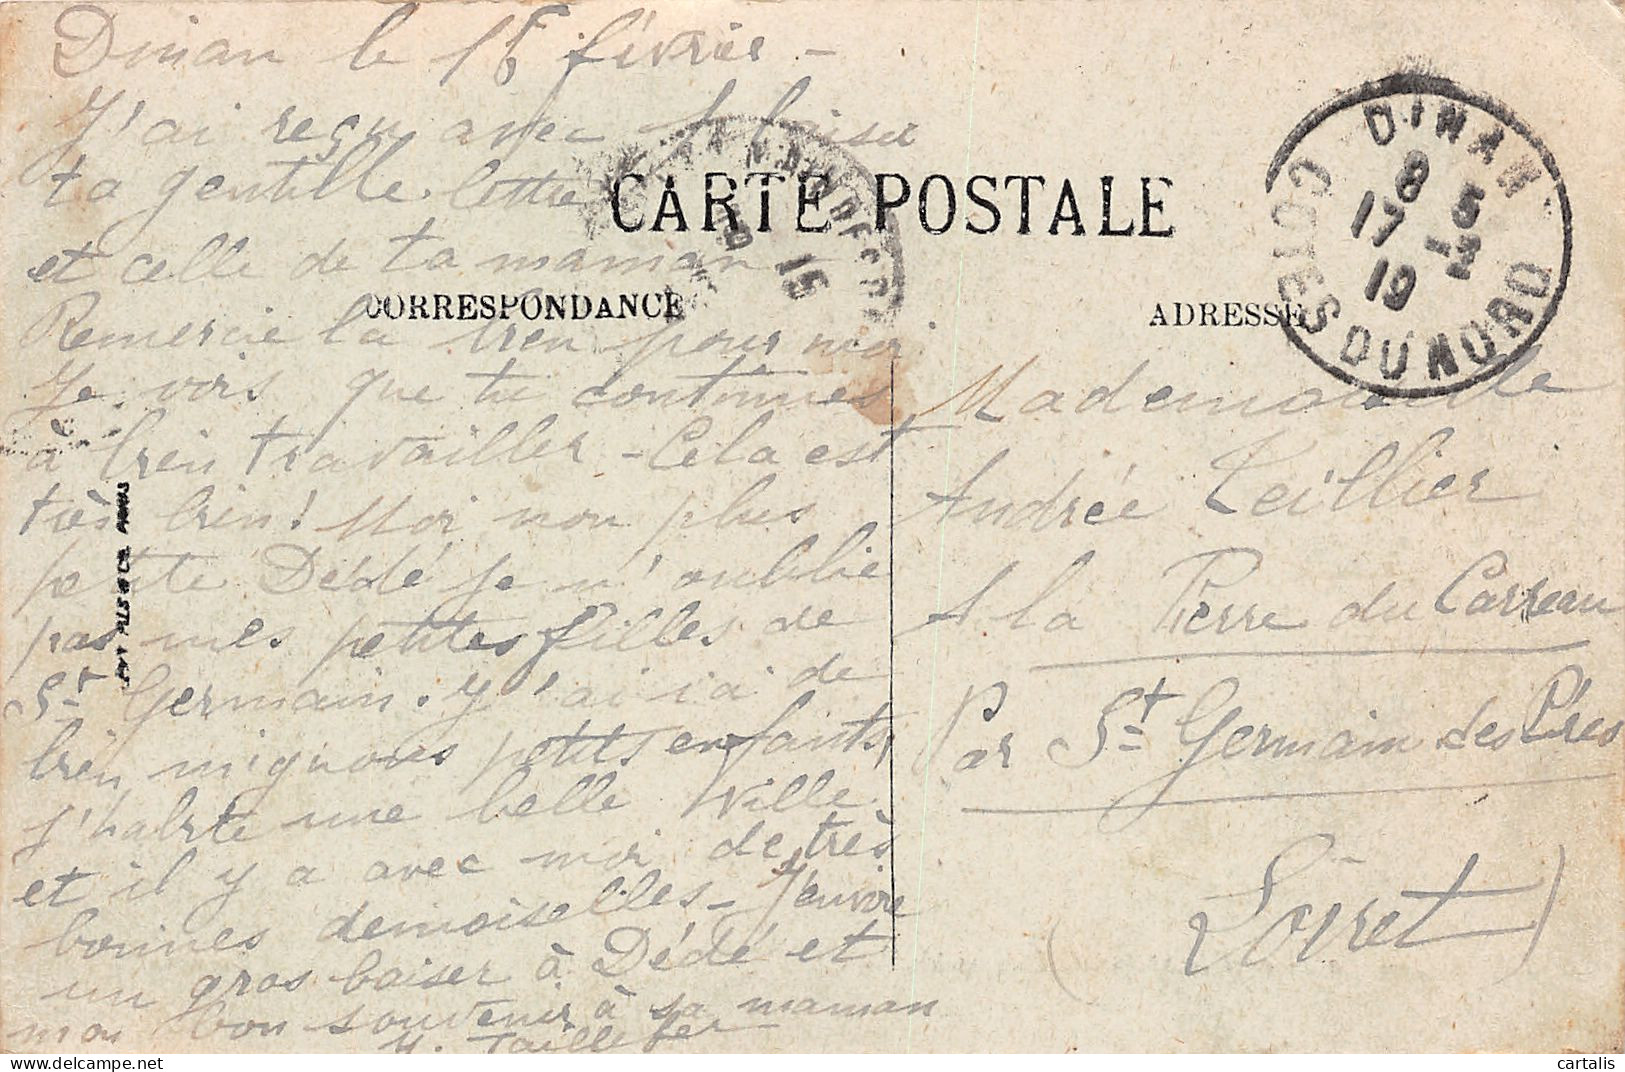 Dinan le 16 février -
J'ai reçu avec plaisir
ta gentille lettre
et celle de ta maman
Remercie la bien pour moi
Je vois que tu continues
à bien travailler - Cela est
très bien! Moi non plus
petite Dédé je n'oublie
pas mes petites filles de
St Germain. J'ai ici de
bien mignons petits enfants,
j'habite une belle ville
et il y a avec moi de très
bonnes demoiselles - J'envoie
un gros baiser à Dédé et
mon bon souvenir à sa maman
CARTE POSTALE
CORRESPONDANCE
ADRESSE
DINAN
8 5
17 - 2
19
COTES DU NORD
Mademoiselle
Andrée Teillier
A la Pierre du Carreau
Par St Germain des Prés
(Loiret)
cartalis